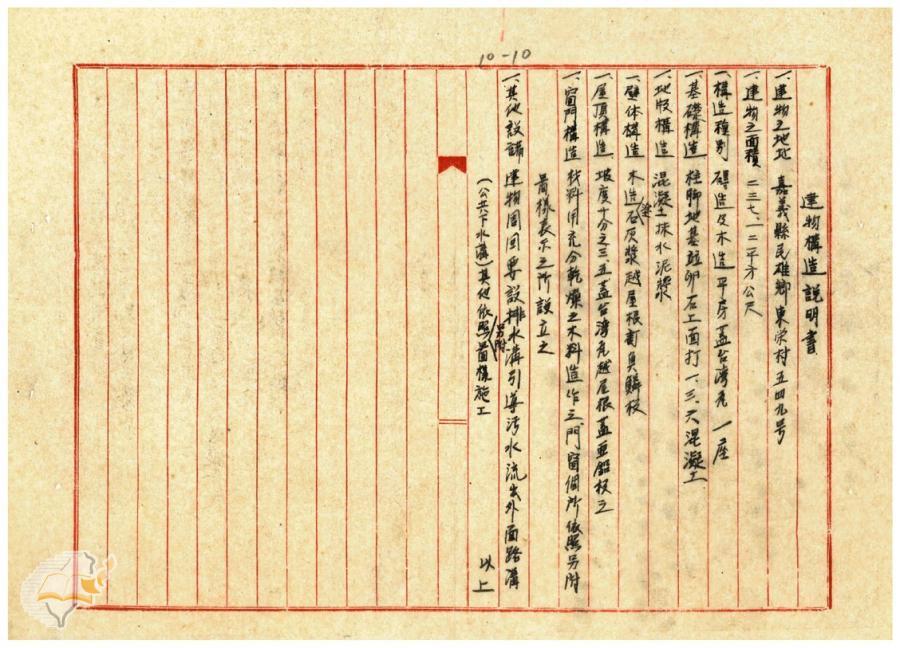 10-10
建物構造說明書
一、建物之地址 嘉義縣民雄鄉東榮村五四九号
一、建物之面積 二三七、一二平方公尺
一、構造種別 磚造及木造平房蓋台湾瓦 一座
一、基礎構造 柱脚地基 卵石上面打一、三、六混凝土
一、地版構造 混凝土抹水泥漿
一、壁体構造 木造塗石灰漿越屋根釘魚鱗板
一、屋頂構造 坡度十分之三、五蓋台湾瓦越屋根蓋亜鉛板之
一、窗門構造 材料用充分乾燥之木料造作之門窗個所依照另附
啚樣表示之所設立之
一、其他設備 建物周囲要設排水溝引導汚水流出外面路溝
（公共下水溝）其他依照另附啚樣施工 以上